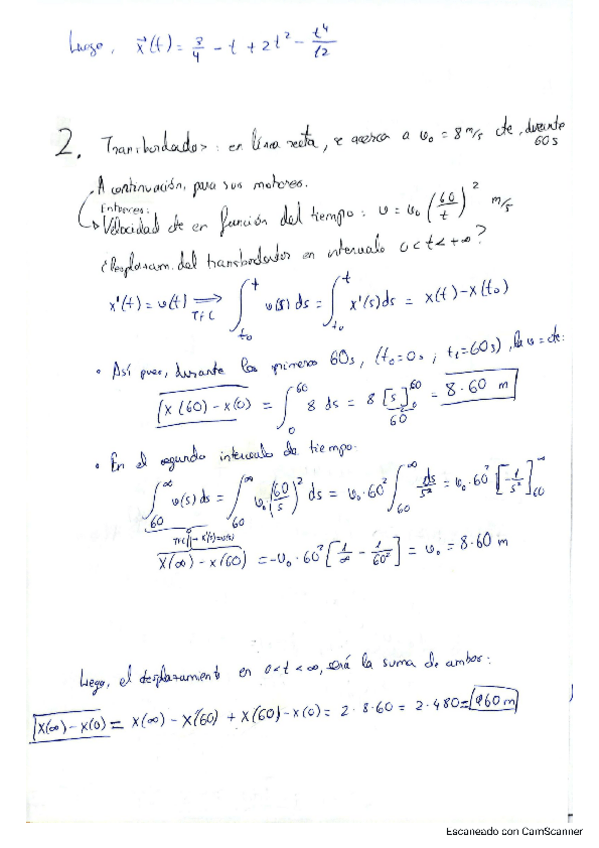 Luego, x⃗(t) = 3/4 - t + 2t² - t⁴/12
2. Transbordador: en línea recta, se acerca a v₀ = 8 m/s cte, durante 60s
A continuación, para sus motores.
Entonces:
Velocidad de en función del tiempo: v = v₀ (60/t)² m/s
¿Desplazam. del transbordador en intervalo 0 < t < +∞?
x'(t) = v(t) ⟹ TFC ∫_{t₀}^{t} v(s) ds = ∫_{t₀}^{t} x'(s) ds = x(t) - x(t₀)
• Así pues, durante los primeros 60s, (t₀=0s, t₁=60s), la v = cte:
x(60) - x(0) = ∫_{0}^{60} 8 ds = 8 [s]_{0}^{60} = 8·60 m
60
• En el segundo intervalo de tiempo:
∫_{60}^{∞} v(s) ds = ∫_{60}^{∞} v₀ (60/s)² ds = v₀·60² ∫_{60}^{∞} ds/s² = v₀·60² [-1/s²]_{60}^{∞}
x(∞) - x(60) = -v₀·60² [1/∞ - 1/60²] = v₀ = 8·60 m
Luego, el desplazamiento en 0<t<∞, será la suma de ambos:
x(∞) - x(0) = x(∞) - x(60) + x(60) - x(0) = 2·8·60 = 2·480 = 960 m
Escaneado con CamScanner